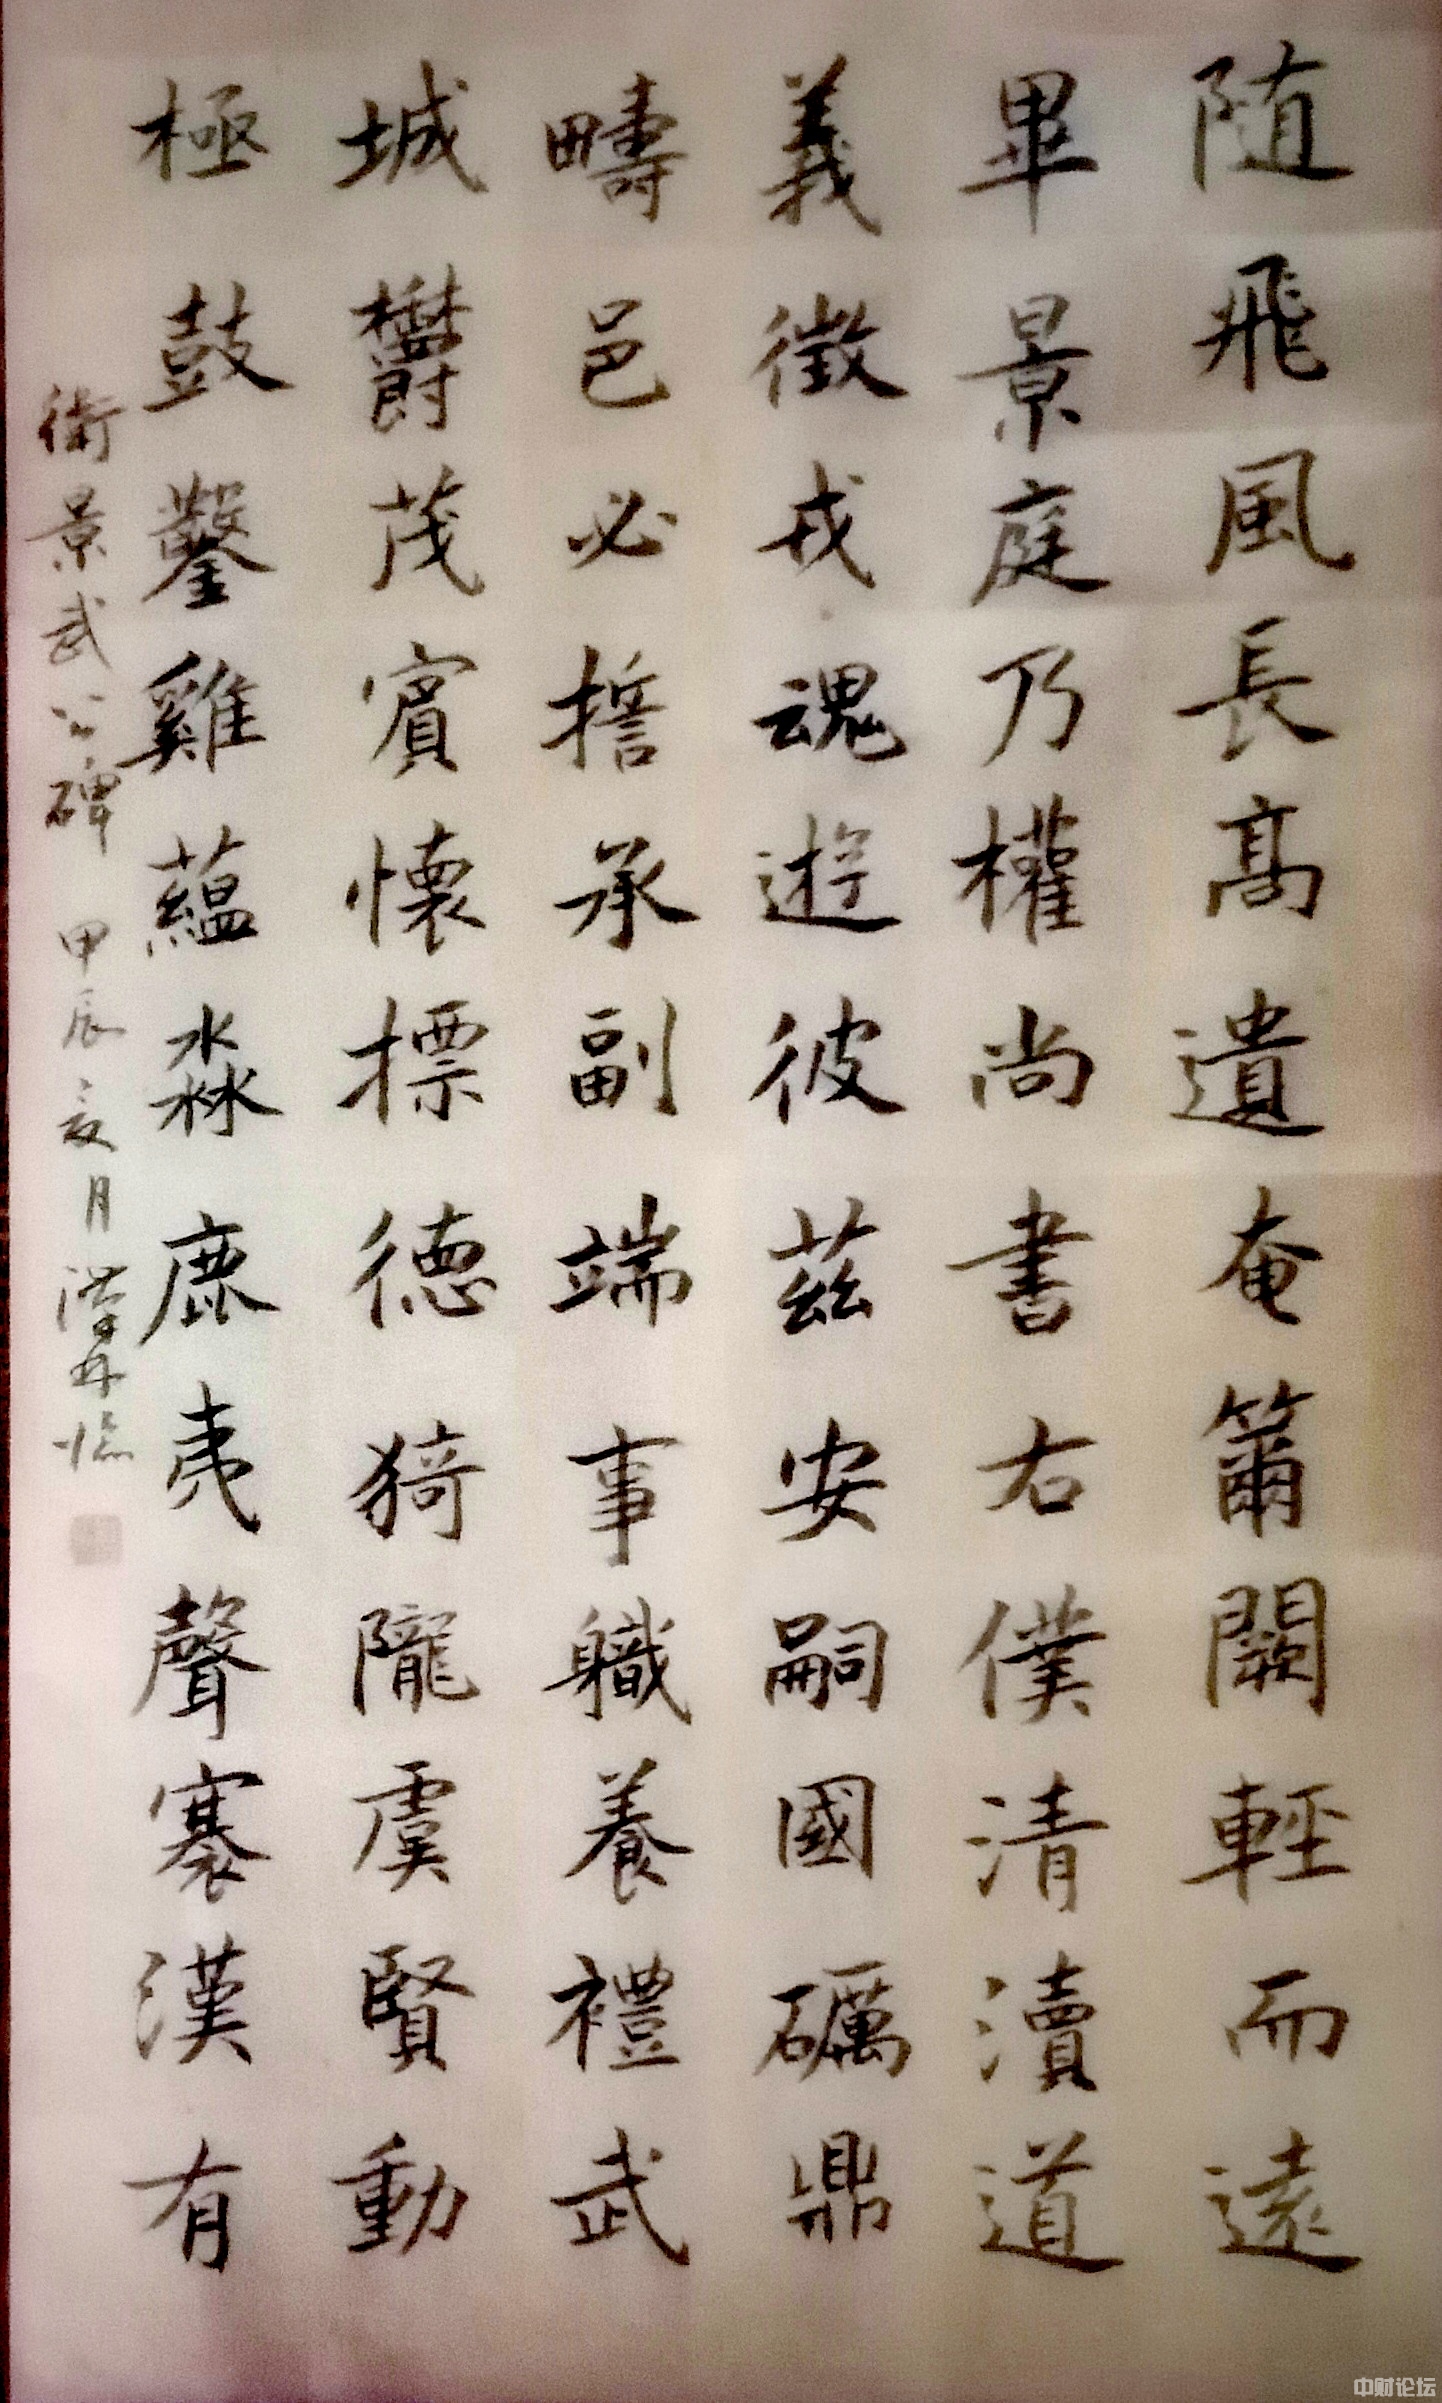 随飛風長高遺奄爾闕輕而遠
畢景庭乃權尚書右僕清瀆道
義徵戎魂遊彼茲安嗣國礪鼎
疇邑必擔承副端事職養禮武
城欝茂賓懷標德猗隴虞賢動
極鼓鑿雞蘊淼鹿夷聲褰漢有
衛景武公碑 甲辰亥月 臨
中财论坛